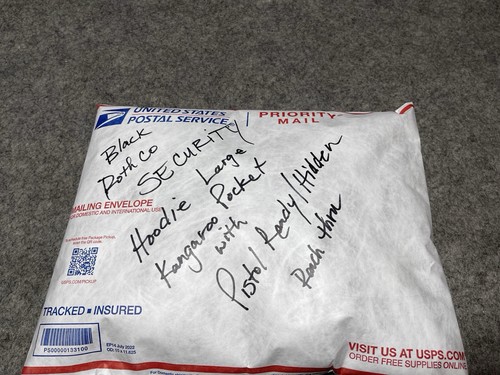 UNITED STATES
POSTAL SERVICE
PRIORITY
MAIL
Black
Rothco
SECURITY
Hoodie Large
Kangaroo Pocket
with
Pistol Ready/Hidden
Reach thru
MAILING ENVELOPE
FOR DOMESTIC AND INTERNATIONAL USE
USPS.COM/PICKUP
TRACKED ■ INSURED
PS00000133100
EP14 July 2022
VISIT US AT USPS.COM
ORDER FREE SUPPLIES ONLINE